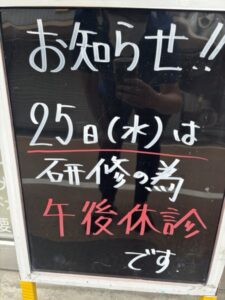 お知らせ!!
25日(水)は
研修の為
午後休診
です